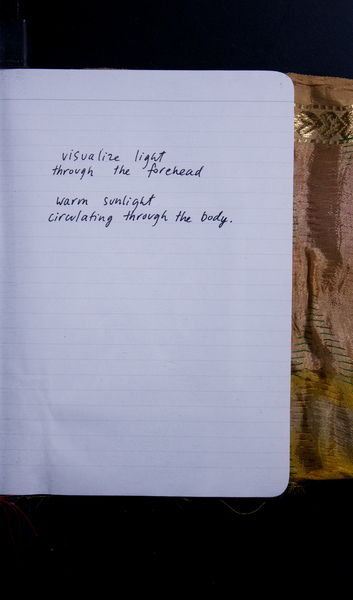 visualize light
through the forehead
warm sunlight
circulating through the body.